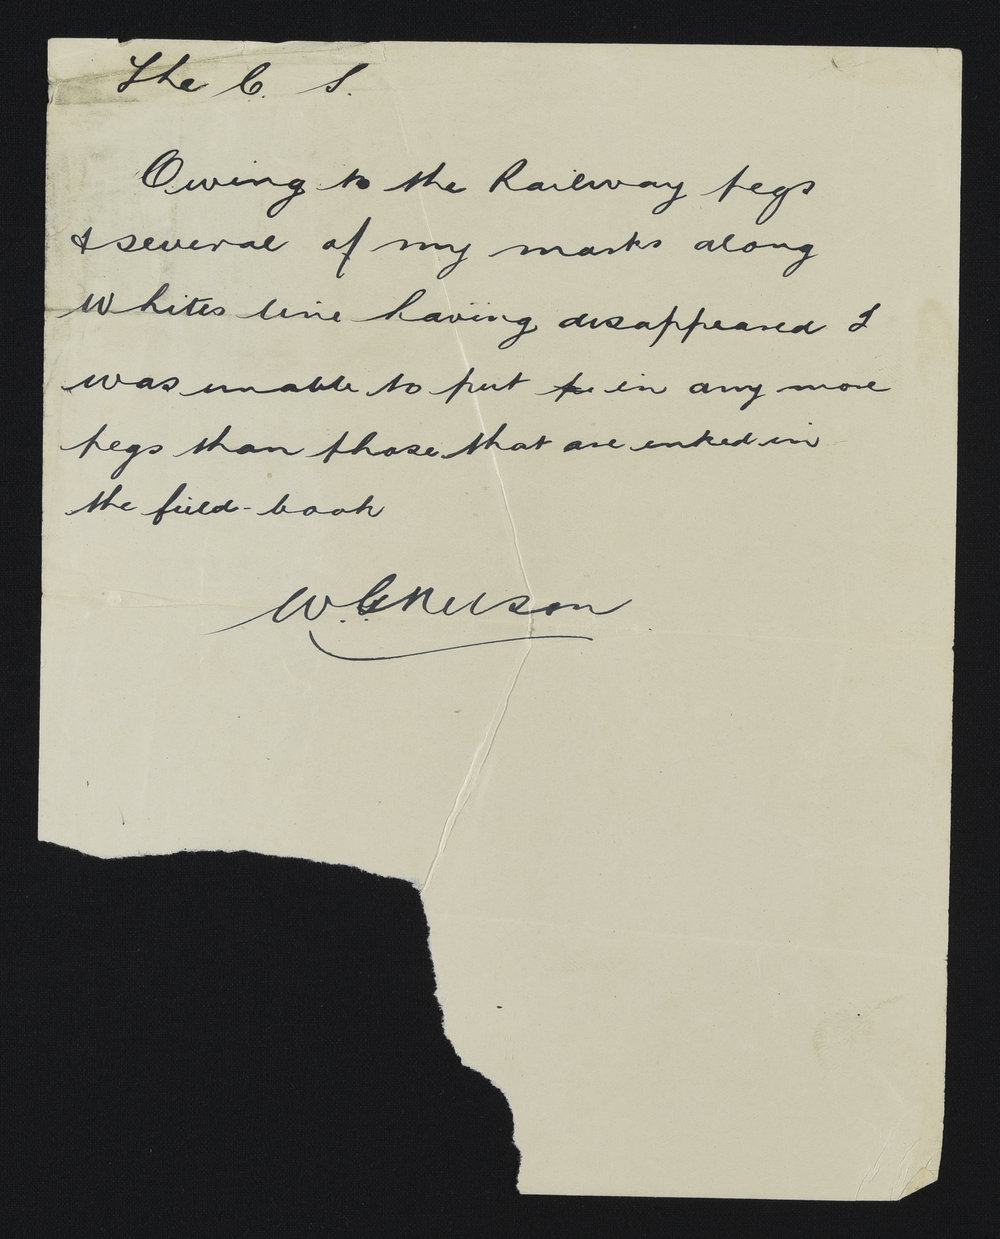 The C. S.
Owing to the Railway pegs
& several of my marks along
Whites line having disappeared I
was unable to put in any more
pegs than those that are inked in
the field-book
W. G. Nelson